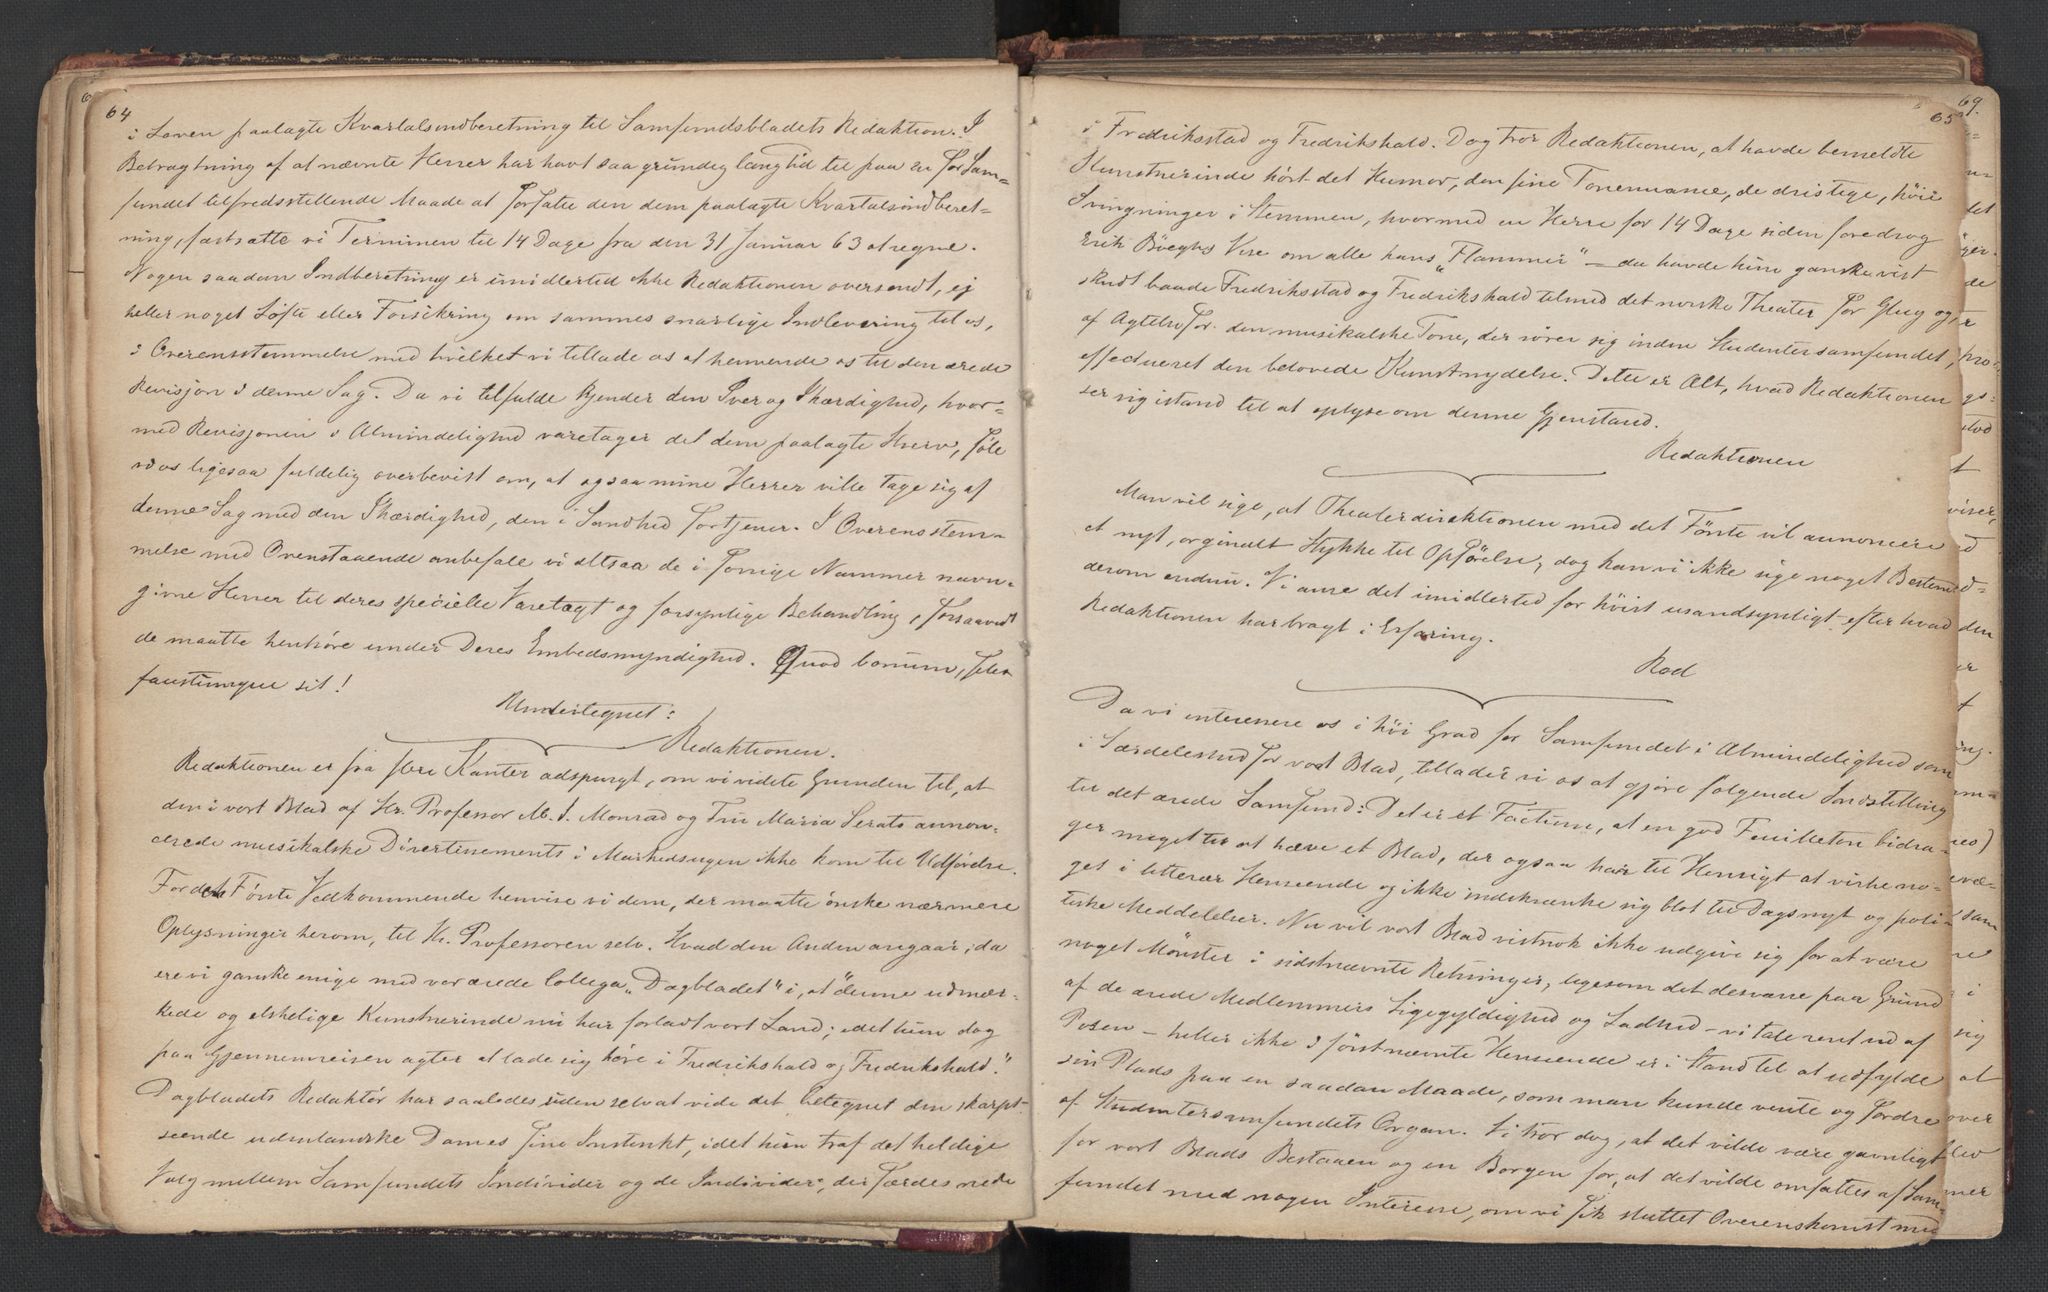 64
i Loven paalagte Kvartalsindberetning til Samfundsbladets Redaktion. I
Betragtning af at nævnte Herrer har havt saa grundig lang Tid til paa en for Sam-
fundet tilfredsstillende Maade at forfatte den dem paalagte Kvartalsindberet-
ning, fastsatte vi Terminen til 14 Dage fra den 31 Januar 63 at regne.
Nogen saadan Indberetning er imidlertid ikke Redaktionen oversendt, ej
heller noget Løfte eller Forsikring om sammes snarlige Indlevering til os,
i Overensstemmelse med hvilket vi tillade os at henvende os til den ærede
Revisjon i denne Sag. Da vi tilfulde kjender den Iver og Ihærdighed, hvor-
med Revisjonen i Almindelighed varetager det dem paalagte Hverv, føle
vi os ligesaa fuldelig overbevist om, at ogsaa mine Herrer ville tage sig af
denne Sag med den Ihærdighed, den i Sandhed fortjener. I Overensstem-
melse med Ovenstaaende anbefale vi altsaa de i forrige Nummer navn-
givne Herrer til deres specielle Varetægt og forsynlige Behandling, forsaavidt
de maatte henhøre under Deres Embedsmyndighed. Quod bonum, felix
faustumque sit!
Undertegnet:
Redaktionen.
Redaktionen er fra flere Kanter adspurgt, om vi vidste Grunden til, at
den i vort Blad af Hr. Professor M. J. Monrad og Fru Maria Serato annon-
cerede musikalske Divertissements i Markedsugen ikke kom til Udførelse.
For dets Første Vedkommende henvise vi dem, der maatte ønske nærmere
Oplysninger herom, til Hr. Professoren selv. Hvad den Anden angaar, da
ere vi ganske enige med vor ærede Collega „Dagbladet" i, at "denne udmær-
kede og elskelige Kunstnerinde nu har forladt vort Land; idet hun dog
paa Gjennemreisen agter at lade sig høre i Fredrikshald og Fredrikshald."
Dagbladets Redaktør har saaledes uden selv at vide det betegnet den skarpt-
seende udenlandske Dames fine Instinkt, idet hun traf det heldige
Valg mellem Samfundets Individer og de Individer, der færdes nede
65
i Fredriksstad og Fredrikshald. Dog tror Redaktionen, at havde bemeldte
Kunstnerinde hørt det Humor, den fine Tonenuance, de dristige, høie
Svingninger i Stemmen, hvormed en Herre for 14 Dage siden foredrog
Erik Bøeghs Vise om alle hans „Flammer" – da havde hun ganske vist
skudt baade Fredriksstad og Fredrikshald tilmed det norske Theater for Glug og,
af Agtelse for den musikalske Tone, der rører sig inden Studentersamfundet,
effectueret den belovede Kunstnydelse. Dette er Alt, hvad Redaktionen
ser sig istand til at oplyse om denne Gjenstand.
Redaktionen
Man vil sige, at Theaterdirektionen med det Første vil annoncere
et nyt, orginalt Stykke til Opførelse; dog kan vi ikke sige noget Bestemt
derom endnu. Vi anse det imidlertid for høist usandsynligt efter hvad
Redaktionen har bragt i Erfaring.
Red
Da vi interessere os i høi Grad for Samfundet i Almindelighed som
i Særdeleshed for vort Blad, tillader vi os at gjøre følgende Indstilling
til det ærede Samfund: Det er et Factum, at en god Feuilleton bidra-
ger meget til at hæve et Blad, der ogsaa har til Hensigt at virke no-
get i litterær Henseende og ikke indskrænke sig blot til Dagsnyt og poli-
tiske Meddelelser. Nu vil vort Blad vistnok ikke udgive sig for at være
noget Mønster i sidstnævnte Retninger, ligesom det desværre paa Grund
af de ærede Medlemmers Ligegyldighed og Ladhed – vi tale rent ud af
Posen – heller ikke i førstnævnte Henseende er i Stand til at udfylde
sin Plads paa en saadan Maade, som man kunde vente og fordre
af Studentersamfundets Organ. Vi tror dog, at det vilde være gavnligt
for vort Blads Bestaaen og en Borgen for, at det vilde omfattes af Sam-
fundet med nogen Interesse, om vi fik sluttet Overenskomst med
69.